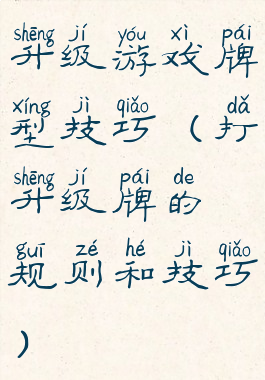 shēng jí yóu xì pái
升级游戏牌
xíng jì qiǎo dǎ
型技巧（打
shēng jí pái de
升级牌的
guī zé hé jì qiǎo
规则和技巧
）